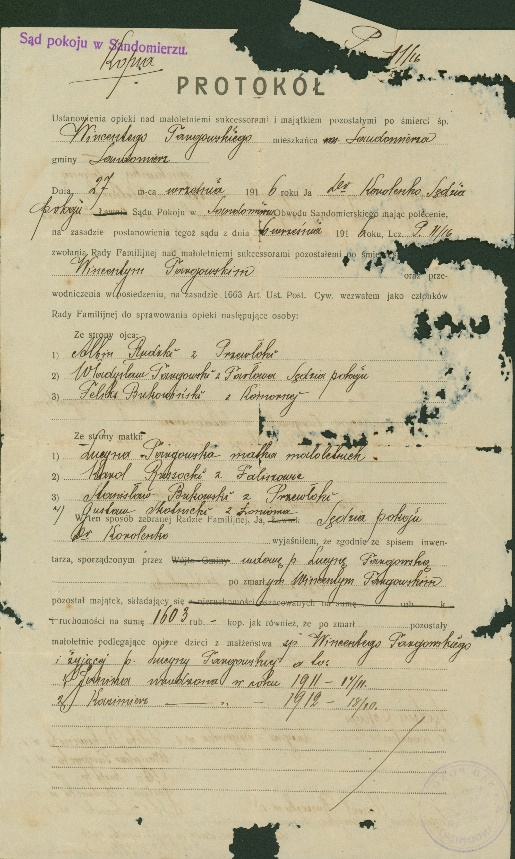 Sąd pokoju w Sandomierzu.
Kopia
P. 11/16
PROTOKÓŁ
Ustanowienia opieki nad małoletniemi sukcessorami i majątkiem pozostałymi po śmierci śp.
Wincentego Targowskiego mieszkańca m. Sandomierza
gminy Sandomierz
Dnia 27 m-ca września 1916 roku Ja Dr Korolenko Sędzia
pokoju Ławnik Sądu Pokoju w Sandomierzu Obwodu Sandomierskiego mając polecenie,
na zasadzie postanowienia tegoż sądu z dnia 6 września 1916 roku, Lcz. P. 11/16
zwołania Rady Familijnej nad małoletniemi sukcessorami pozostałemi po śmierci
Wincentym Targowskim oraz prze-
wodniczenia w posiedzeniu, na zasadzie 1663 Art. Ust. Post. Cyw. wezwałem jako członków
Rady Familijnej do sprawowania opieki następujące osoby:
Ze strony ojca:
1) Albin Rudzki z Przewłoki
2) Władysław Targowski z Pawłowa Sędzia pokoju
3) Feliks Bukowiński z
Ze strony matki:
1) Lucyna Targowska matka małoletnich
2) Karol Russocki z
3) Stanisław Bukowski z Przewłoki
4) Gustaw Skotnicki z
W ten sposób zebranej Radzie Familijnej, Ja, Ławnik Sędzia pokoju
Dr Korolenko wyjaśniłem, że zgodnie ze spisem inwen-
tarza, sporządzonym przez Wójta Gminy wdowę p. Lucynę Targowską
po zmarłym Wincentym Targowskim
pozostał majątek, składający się z nieruchomości oszacowanych na sumę rub. k.
i ruchomości na sumę 1603 rub. – kop. jak również, że po zmarł pozostały
małoletnie podlegające opiece dzieci z małżeństwa śp Wincentego Targowskiego
i żyjącej p. Lucyny Targowskiej a to:
1) urodzona w roku 1911 –
2) Kazimierz — „ — 1912 –